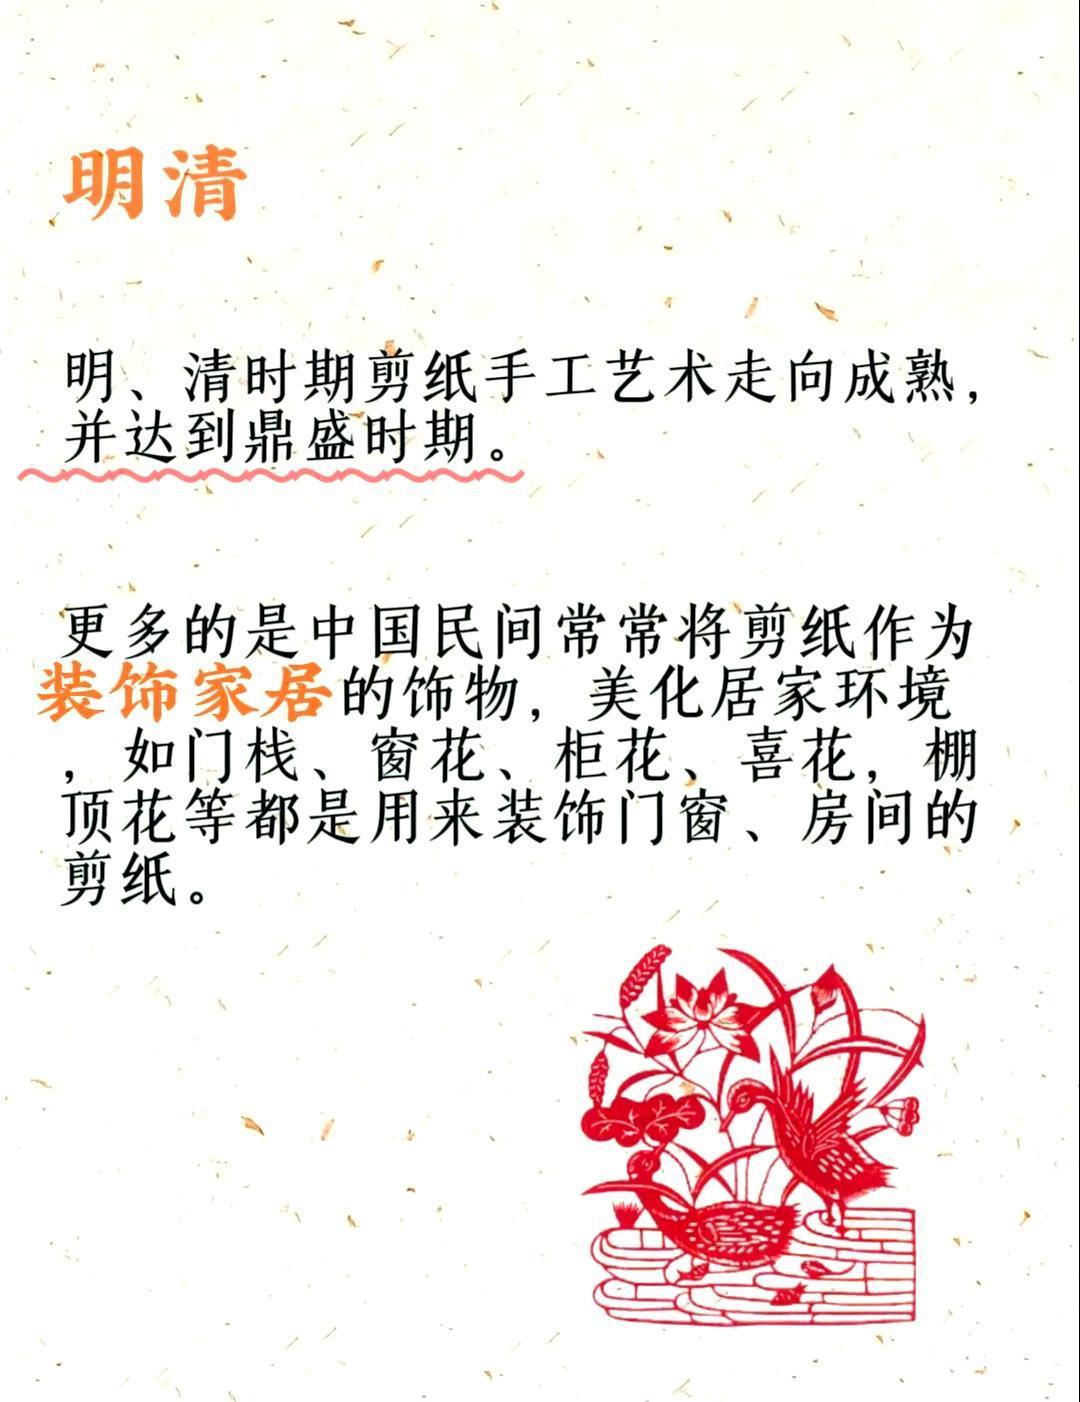 明清
明、清时期剪纸手工艺术走向成熟，
并达到鼎盛时期。
更多的是中国民间常常将剪纸作为
装饰家居的饰物，美化居家环境
，如门栈、窗花、柜花、喜花，棚
顶花等都是用来装饰门窗、房间的
剪纸。